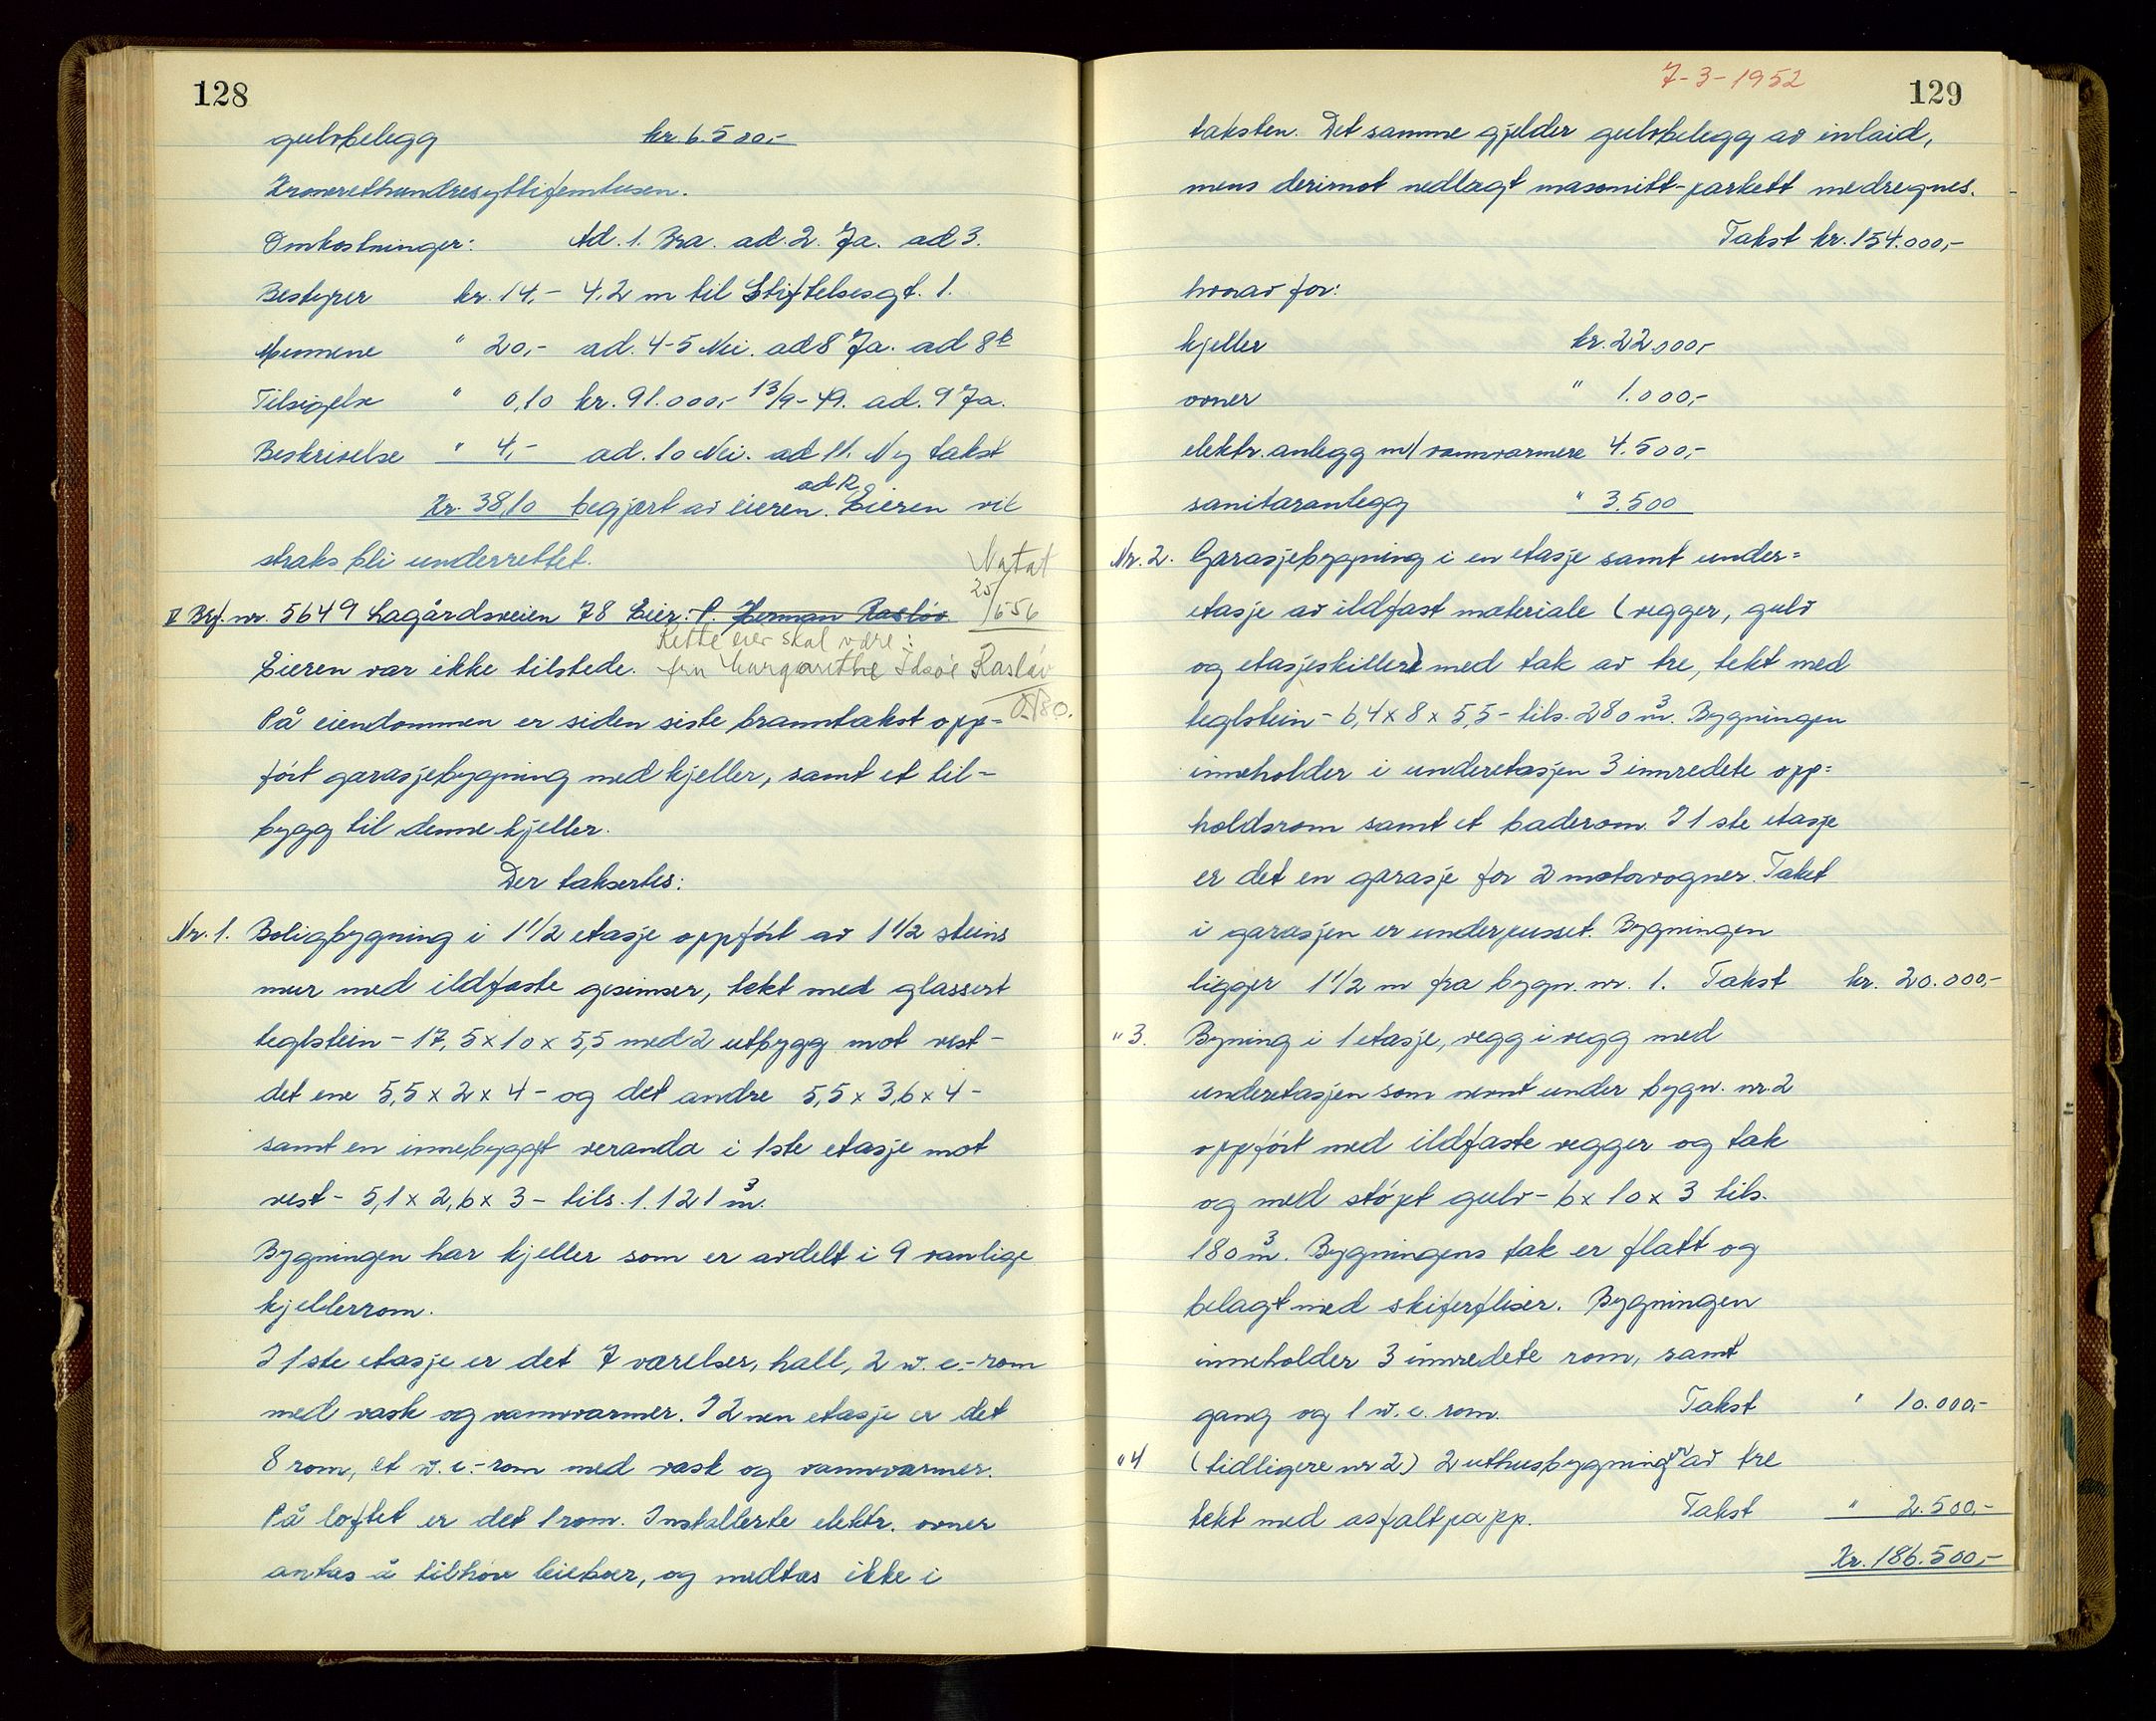 128
gulvbelegg kr. 6.500,-
Kroneretthundresyttifemtusen.
Omkostninger: Ad. 1. Bra. ad. 2. Ja. ad 3.
Bestyrer kr. 14,- 4,2 m til Stiftelsesgt. 1.
Mennene " 20,- ad. 4-5 Nei. ad 8 Ja. ad 8b
Tilsigelse " 0,10 kr. 91.000,- 13/9-49. ad. 9 Ja.
Beskrivelse " 4,- ad. 10 Nei. ad 11. Ny takst
ad 12
Kr. 38,10 begjært av eieren. Eieren vil
straks bli underrettet.
Notat
25/656
V Brf. nr. 5649 Lagårdsveien 78 Eier: P. Herman Rasløv
Rette eier skal være:
Eieren var ikke tilstede. fru Margarethe Idsøe Rasløv
På eiendommen er siden siste branntakst opp=
ført garasjebygning med kjeller, samt et til-
bygg til denne kjeller.
Der taksertes:
Nr. 1. Boligbygning i 1 1/2 etasje oppført av 1 1/2 steins
mur med ildfaste gesimser, tekt med glassert
teglstein - 17,5 x 10 x 5,5 med 2 utbygg mot vest -
det ene 5,5 x 2 x 4 - og det andre 5,5 x 3,6 x 4 -
samt en innebyggt veranda i 1ste etasje mot
vest - 5,1 x 2,6 x 3 - tils. 1.121 m3.
Bygningen har kjeller som er avdelt i 9 vanlige
kjellerrom.
I 1ste etasje er det 7 værelser, hall, 2 w.c.-rom
med vask og vannvarmer. I 2nen etasje er det
8 rom, et w.c.-rom med vask og vannvarmer.
På loftet er det 1 rom. Installerte elektr. ovner
antas å tilhøre leieboer, og medtas ikke i
7-3-1952
129
taksten. Det samme gjelder gulvbelegg av inlaid,
mens derimot nedlagt masonitt-parkett medregnes.
Takst kr. 154.000,-
hvorav for:
kjeller kr. 22.000,-
ovner " 1.000,-
elektr. anlegg m/ vannvarmere 4.500,-
sanitæranlegg " 3.500
Nr. 2. Garasjebygning i en etasje samt under=
etasje av ildfast materiale (vegger, gulv
og etasjeskillere) med tak av tre, tekt med
teglstein - 6,4 x 8 x 5,5 - tils. 280 m3. Bygningen
inneholder i underetasjen 3 innredete opp=
holdsrom samt et baderom. I 1ste etasje
er det en garasje for 2 motorvogner. Taket
i garasjen er underpusset. Bygningen
ligger 1 1/2 m fra bygn. nr. 1. Takst kr. 20.000,-
" 3. Byning i 1 etasje, vegg i vegg med
underetasjen som nevnt under bygn. nr. 2
oppført med ildfaste vegger og tak
og med støpt gulv - 6 x 10 x 3 tils.
180 m3. Bygningens tak er flatt og
belagt med skiferfliser. Bygningen
inneholder 3 innredete rom, samt
gang og 1 w.c. rom. Takst " 10.000,-
" 4 (tidligere nr 2) 2 uthusbygninger av tre
tekt med asfaltpapp. Takst " 2.500,-
Kr. 186.500,-